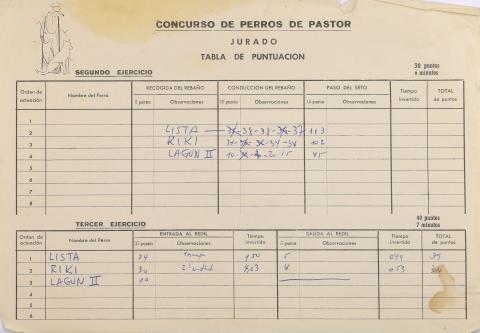 CONCURSO DE PERROS DE PASTOR
JURADO
TABLA DE PUNTUACION
30 puntos
6 minutos
SEGUNDO EJERCICIO
Orden de actuación
Nombre del Perro
RECOGIDA DEL REBAÑO
CONDUCCION DEL REBAÑO
PASO DEL SETO
Tiempo invertido
TOTAL de puntos
5 puntos Observaciones 10 puntos Observaciones 15 puntos Observaciones
1
2 LISTA 38-38 37 113
3 RIKI 34 34 102
4 LAGUN II 10 20-15 45
5
6
7
8
40 puntos
7 minutos
TERCER EJERCICIO
Orden de actuación
Nombre del Perro
ENTRADA AL REDIL
Tiempo invertido
SALIDA AL REDIL
Tiempo invertido
TOTAL de puntos
35 puntos Observaciones 5 puntos Observaciones
1 LISTA 34 5 39
2 RIKI 30 4 0,53
3 LAGUN II 10
4
5
6